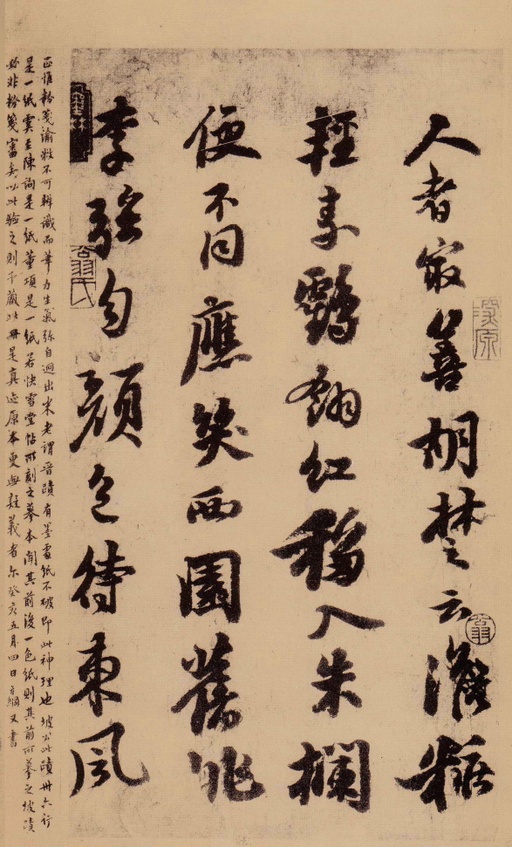 人者冣善胡楚云澹粧
輕素鸖翎紅移入朱欄
便不同應笑西園舊桃
李强勻顏色待東風
正惟粉箋渝敝不可辨識而筆力生氣弥自迥出米老謂晉蹟有墨盡紙不破即此神理也坡公此蹟卅六行
是一紙虞主陳詢是一紙董項是一紙若快雪堂帖所刻之摹本聞其前後一色紙則其前所摹之坡蹟
必非粉箋審矣以此驗之則予藏此冊是真迹原本更無疑義者尔癸亥五月四日方綱又書
翁氏
翁